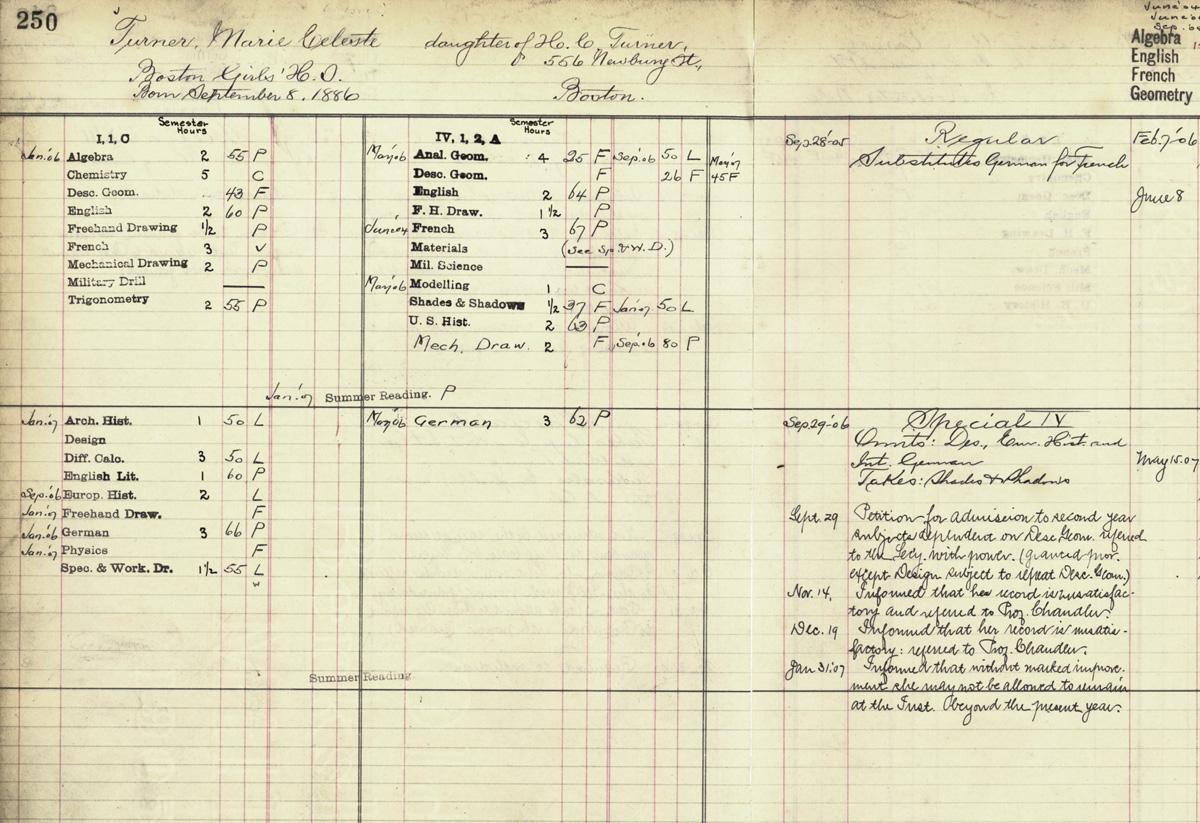 250
Turner, Marie Celeste daughter of H. C. Turner,
556 Newbury St.,
Boston Girls' H. S.
Born September 8, 1886 Boston.
June '04
June '0
Sep. '0
Algebra
English
French
Geometry
I, 1, C Semester Hours
Jan '06 Algebra 2 55 P
Chemistry 5 C
Desc. Geom. 43 F
English 2 60 P
Freehand Drawing 1/2 P
French 3 V
Mechanical Drawing 2 P
Military Drill
Trigonometry 2 55 P
IV, 1, 2, A Semester Hours
May '06 Anal. Geom. 4 25 F Sep. '06 50 L May '07
Desc. Geom. F 26 F 45 F
English 2 64 P
F. H. Draw. 1 1/2 P
June '04 French 3 67 P
Materials (See Sp & W. D.)
Mil. Science
May '06 Modelling 1 C
Shades & Shadows 1/2 37 F Jan '07 50 L
U. S. Hist. 2 63 P
Mech. Draw. 2 F Sep. '06 80 P
Jan '07 Summer Reading. P
Sep. 28-05 Regular Feb. 7-'06
Substitutes German for French
June 8
Jan '07 Arch. Hist. 1 50 L
Design
Diff. Calc. 3 50 L
English Lit. 1 60 P
Sep. '06 Europ. Hist. 2 L
Jan '07 Freehand Draw. F
Jan '06 German 3 66 P
Jan '07 Physics F
Spec. & Work. Dr. 1 1/2 55 L
w
May '06 German 3 62 P
Summer Reading
Sep. 29-06 Special IV
Omits: Des., Eur. Hist. and
Int. German May 15.07
Takes: Shades & Shadows
Sept. 29 Petition for admission to second year
subjects dependent on Desc. Geom. referred
to the Secy. with power. (granted prov.
except Design subject to repeat Desc. Geom.)
Nov. 14. Informed that her record is unsatisfac-
tory and referred to Prof. Chandler.
Dec. 19 Informed that her record is unsatis-
factory: referred to Prof. Chandler.
Jan 31.07 Informed that without marked improve-
ment she may not be allowed to remain
at the Inst. beyond the present year.